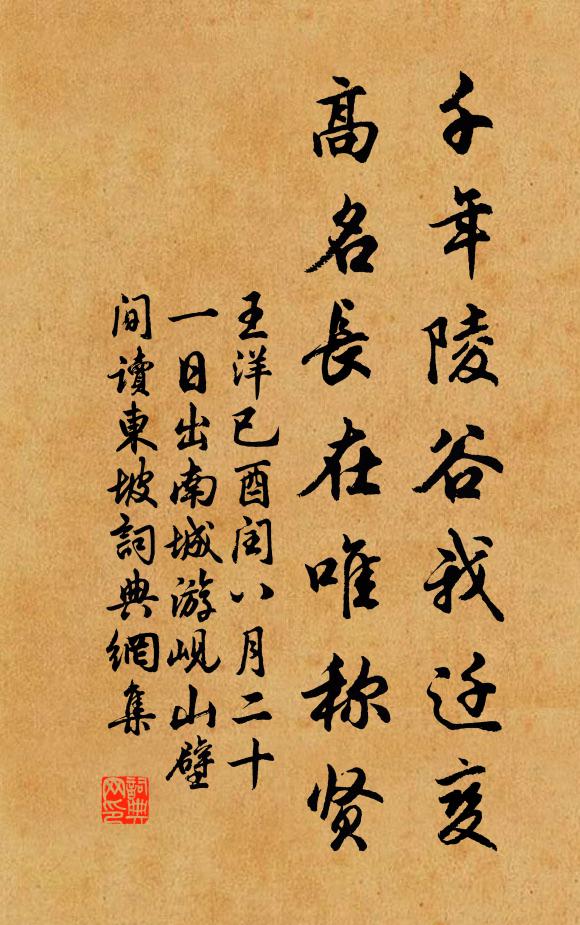 千年陵谷我迁变
高名長在唯称贤
王洋已酉闰八月二十
一日出南城游岘山壁
间读東坡詞典網集
詞典网印